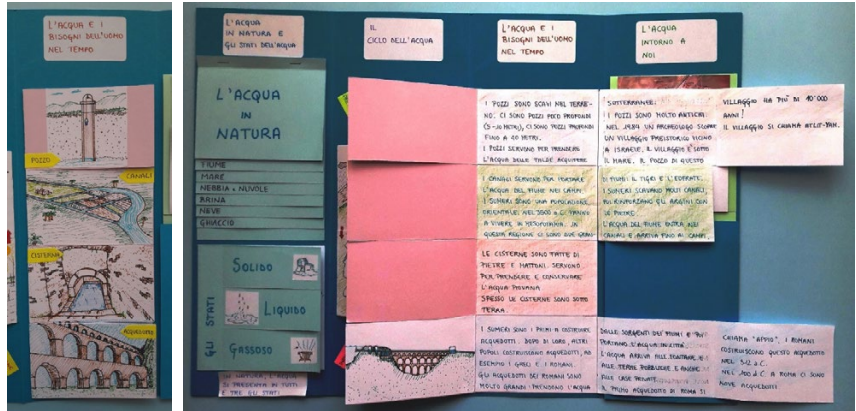 L'ACQUA E I
BISOGNI DELL'UOMO
NEL TEMPO
POZZO
CANALI
CISTERNA
ACQUEDOTTO
L'ACQUA
IN NATURA E
GLI STATI DELL'ACQUA
IL
CICLO DELL'ACQUA
L'ACQUA E I
BISOGNI DELL'UOMO
NEL TEMPO
L'ACQUA
INTORNO A
NOI
L'ACQUA
IN
NATURA
FIUME
MARE
NEBBIA e NUVOLE
BRINA
NEVE
GHIACCIO
GLI STATI
SOLIDO
LIQUIDO
GASSOSO
IN NATURA, L'ACQUA
SI PRESENTA IN TUTTI
E TRE GLI STATI
I POZZI SONO SCAVI NEL TERRE-
NO. CI SONO POZZI POCO PROFONDI
(5-10 METRI), CI SONO POZZI PROFONDI
FINO A 40 METRI.
I POZZI SERVONO PER PRENDERE
L'ACQUA DELLE FALDE ACQUIFERE
SOTTERRANEE.
I POZZI SONO MOLTO ANTICHI.
NEL 1984 UN ARCHEOLOGO SCOPRE
UN VILLAGGIO PREISTORICO VICINO
A ISRAELE. IL VILLAGGIO È SOTTO
IL MARE. IL POZZO DI QUESTO
VILLAGGIO HA PIÙ DI 10'000
ANNI!
IL VILLAGGIO SI CHIAMA ATLIT-YAM.
I CANALI SERVONO PER PORTARE
L'ACQUA DEL FIUME NEI CAMPI.
I SUMERI SONO UNA POPOLAZIONE
ORIENTALE: NEL 3000 a.C. VANNO
A VIVERE IN MESOPOTAMIA. IN
QUESTA REGIONE CI SONO DUE GRAN-
DI FIUMI: IL TIGRI E L'EUFRATE.
I SUMERI SCAVANO MOLTI CANALI,
POI RINFORZANO GLI ARGINI CON
LE PIETRE.
L'ACQUA DEL FIUME ENTRA NEI
CANALI E ARRIVA FINO AI CAMPI.
LE CISTERNE SONO FATTE DI
PIETRE E MATTONI. SERVONO
PER PRENDERE E CONSERVARE
L'ACQUA PIOVANA.
SPESSO LE CISTERNE SONO SOTTO
TERRA.
I SUMERI SONO I PRIMI A COSTRUIRE
ACQUEDOTTI. DOPO DI LORO, ALTRI
POPOLI COSTRUISCONO ACQUEDOTTI, AD
ESEMPIO I GRECI E I ROMANI.
GLI ACQUEDOTTI DEI ROMANI SONO
MOLTO GRANDI: PRENDONO L'ACQUA
DALLE SORGENTI DEI FIUMI E
PORTANO L'ACQUA IN CITTÀ.
L'ACQUA ARRIVA ALLE FONTANE,
ALLE TERME PUBBLICHE E ANCHE
ALLE CASE PRIVATE.
IL PRIMO ACQUEDOTTO DI ROMA SI
CHIAMA "APPIO". I ROMANI
COSTRUISCONO QUESTO ACQUEDOTTO
NEL 312 a.C.
NEL d.C. A ROMA CI SONO
NOVE ACQUEDOTTI